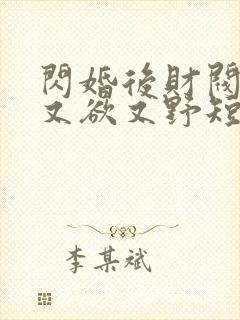 閃婚後財閥
又欲又野短
李某斌